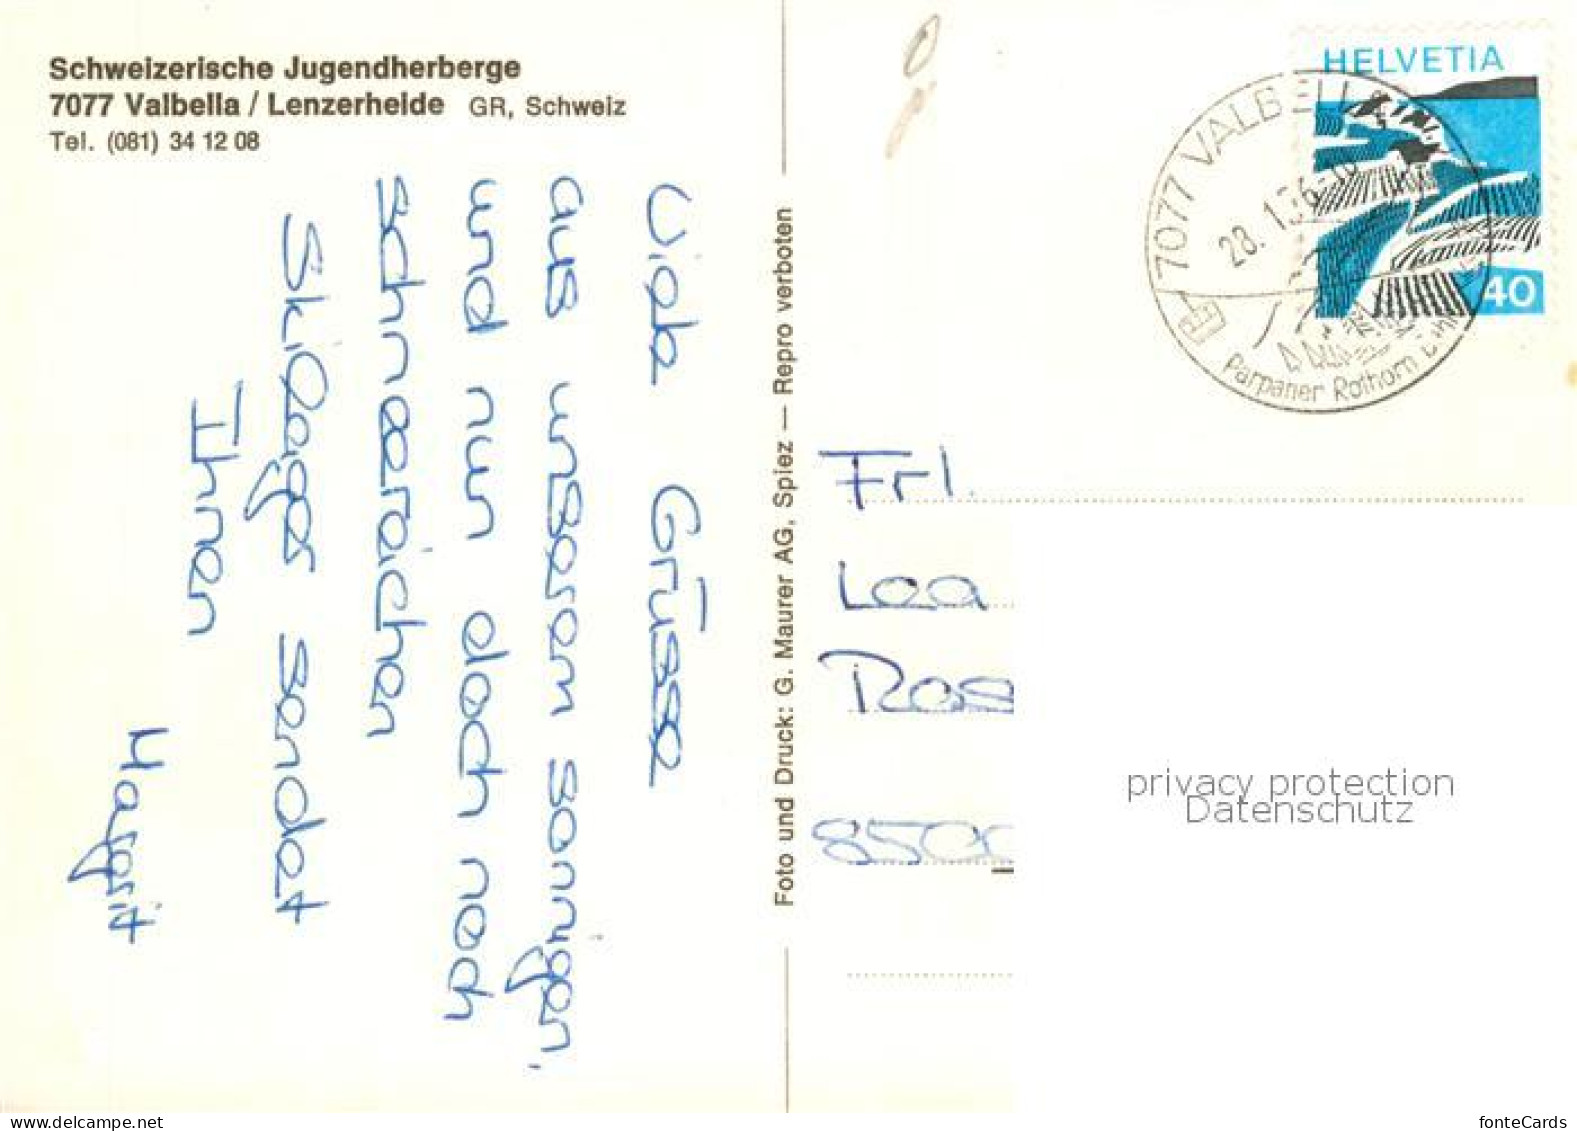 Schweizerische Jugendherberge
7077 Valbella / Lenzerheide GR, Schweiz
Tel. (081) 34 12 08
Viele Grüsse
aus unserem sonnigen,
und nun doch noch
schneereichen
Skilager sendet
Ihnen
Margrit
Foto und Druck: G. Maurer AG, Spiez — Repro verboten
HELVETIA
40
7077 VALBELLA
28. 1.
Parpaner Rothorn
Frl.
Lea
Ros
8500
privacy protection
Datenschutz
www.delcampe.net
fonteCards